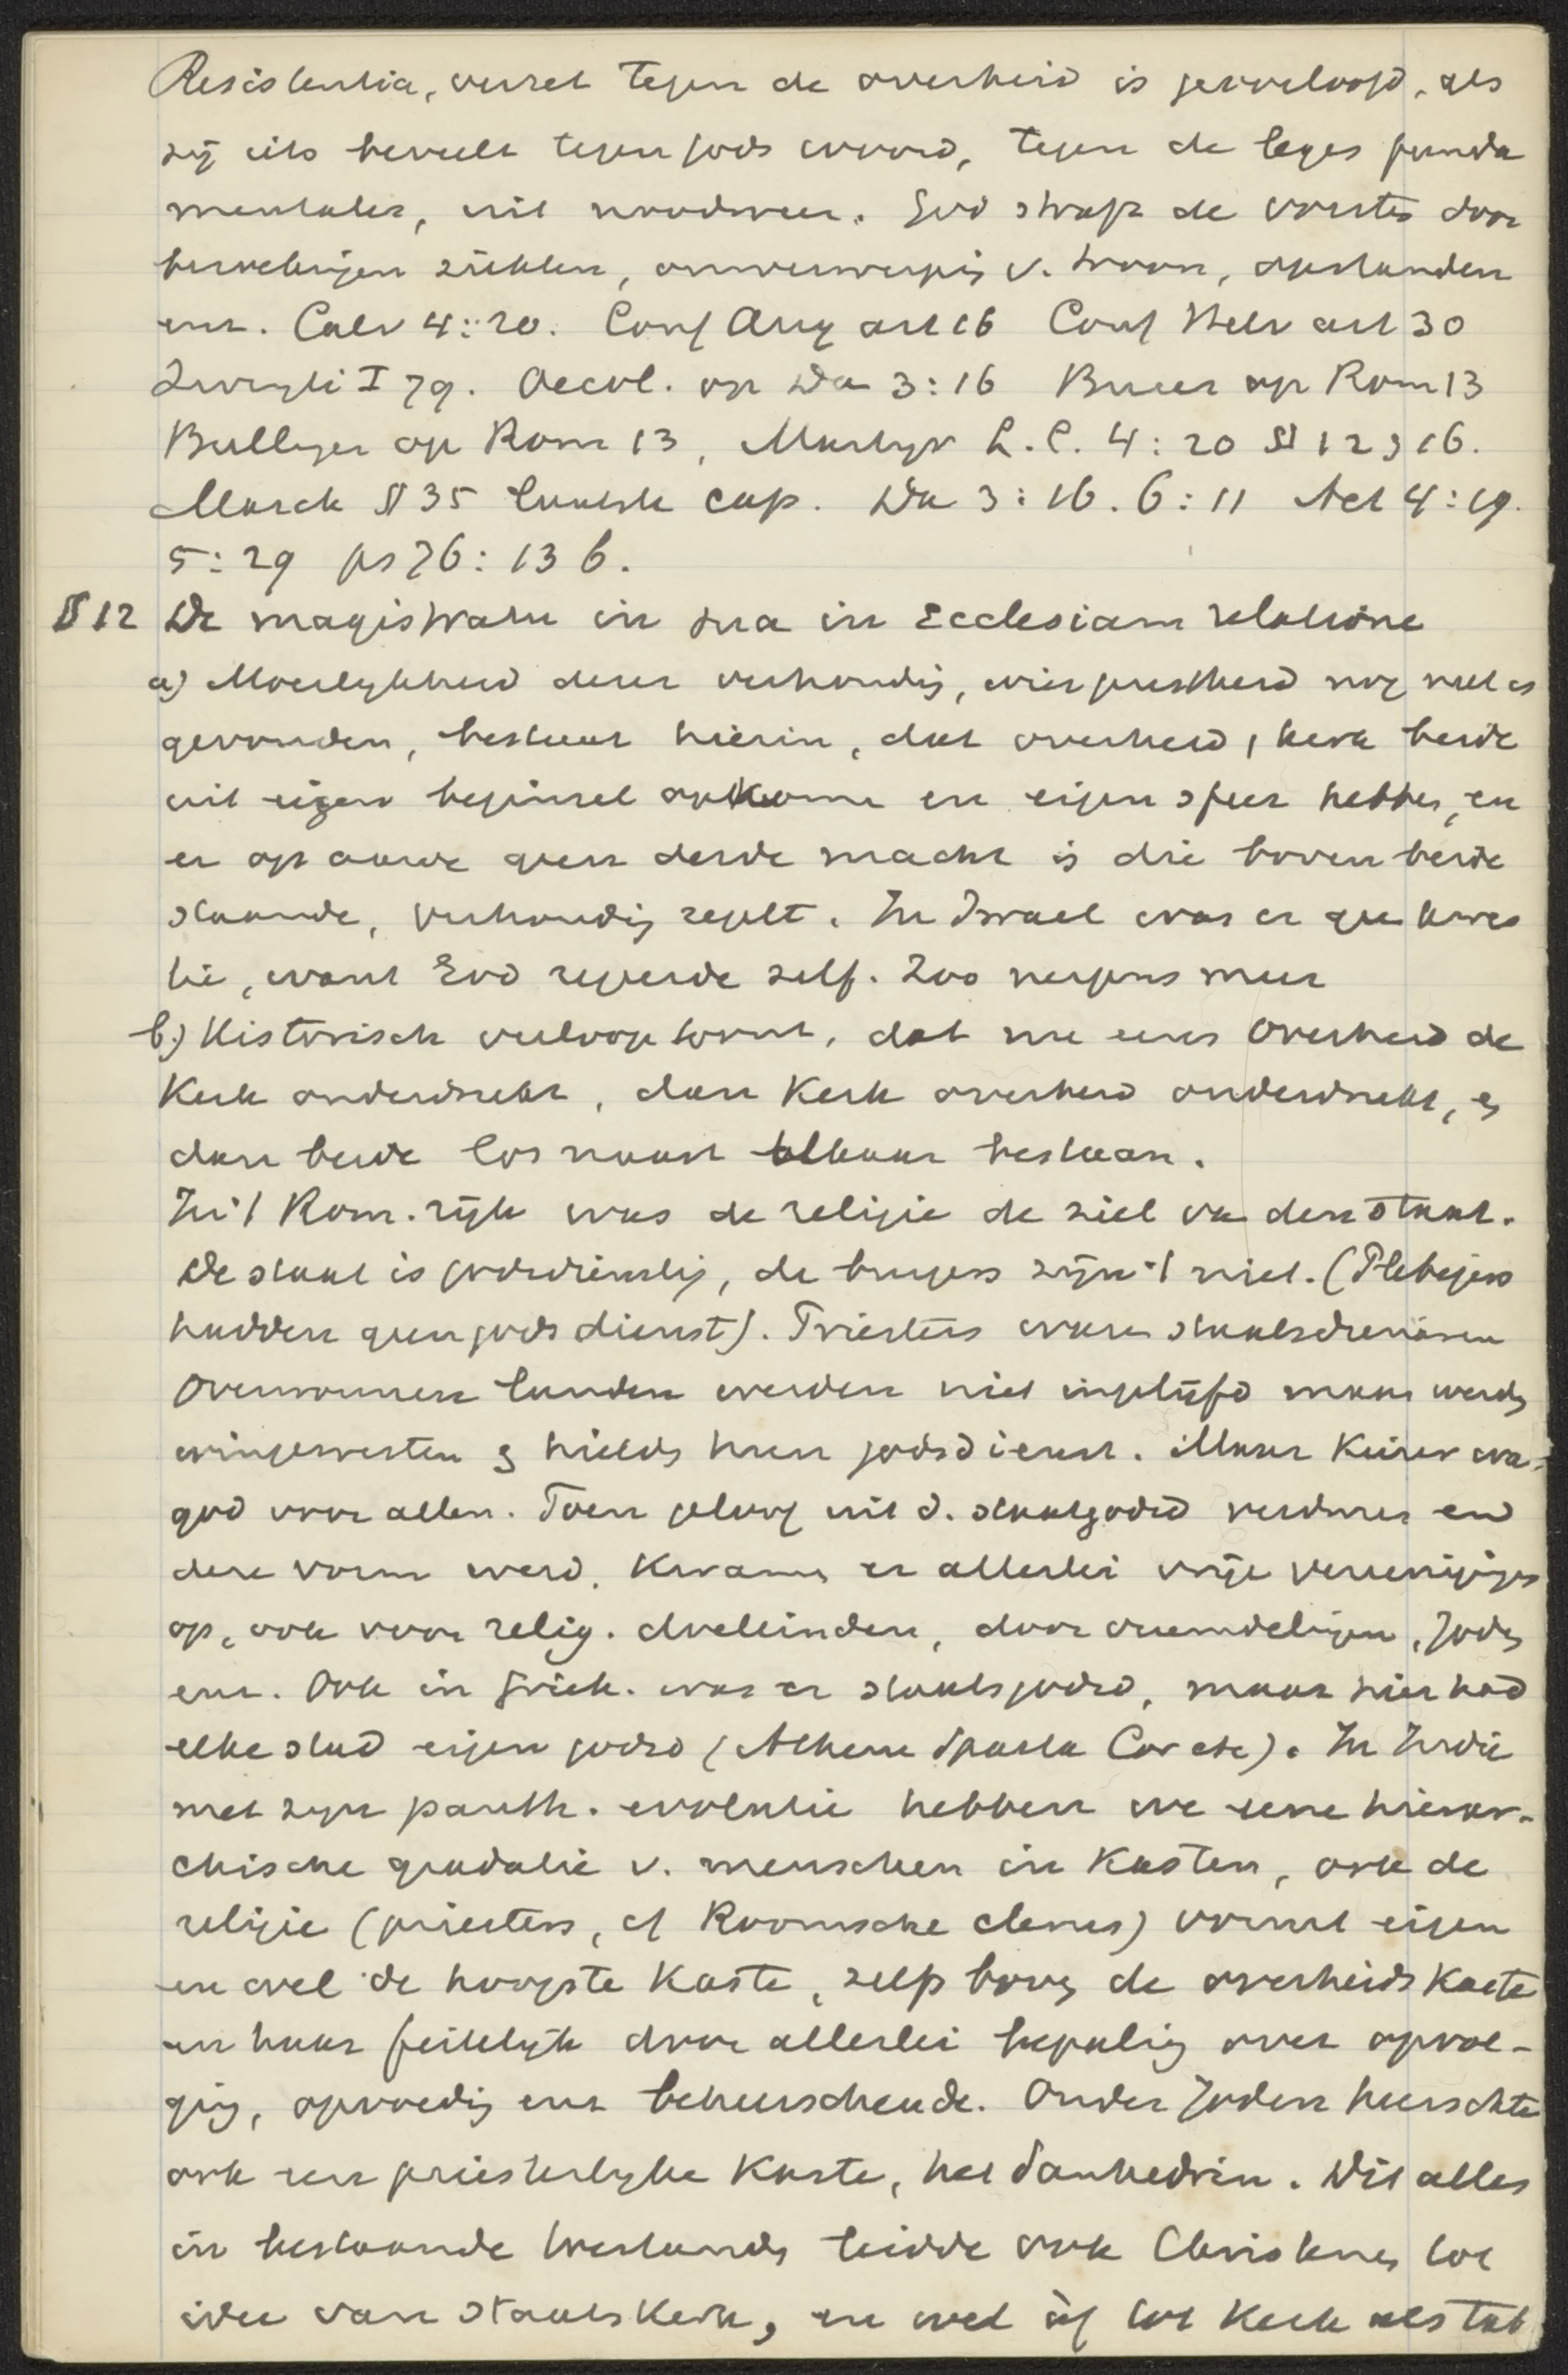 Resistentia, verzet tegen de overheid is geoorloofd, als
zij iets beveelt tegen gods woord, tegen de leges funda
mentales, uit noodweer. God straft de vorsten door
beroeringen ziekten, omverwerping v. troon, opstanden
enz. Calv 4:20. Conf Aug art 16 Conf Helv art 30
Zwingli I 79. Oecol. op Da 3:16 Bucer op Rom 13
Bullinger op Rom 13, Martyr L.C. 4:20 § 12, 16.
Marck § 35 laatste cap. Da 3:16. 6:11 Act 4:19.
5:29 ps 76:13 b.
§ 12 De magistratu in sua in Ecclesiam relatione
a) Moeilijkheid dezer verhouding, wier juistheid nog niet is
gevonden, bestaat hierin, dat overheid, kerk beide
uit eigen beginsel opkomen en eigen sfeer hebben, en
er op aarde geen derde macht is die boven beide
staande, verhouding regelt. In Israel was er geen kwes
tie, want God regeerde zelf. Zoo nergens meer
b.) Historisch verloop toont, dat nu eens Overheid de
Kerk onderdrukt, dan Kerk overheid onderdrukt, en
dan beide los naast elkaar bestaan.
In 't Rom. rijk was de religie de ziel van den staat.
De staat is godsdienstig, de burgers zijn 't niet. (Plebejers
hadden geen godsdienst). Priesters waren staatsdienaren
Overwonnen landen werden niet ingelijfd maar werden
wingewesten en hielden hun godsdienst. Maar Keizer was
god voor allen. Toen geloof uit d. staatgodsd verdween en
deze vorm werd. Kwamen er allerlei vrije vereenigingen
op, ook voor relig. doeleinden, door vreemdelingen, Joden
enz. Ook in Griek. was er staatsgodsd, maar hier had
elke stad eigen godsd (Athene Sparta Cor etc). In Indië
met zijn panth. evolutie hebben we eene hierar-
chische gradatie v. menschen in Kasten, ook de
religie (priesters, cf Roomsche clerus) vormt eigen
en wel de hoogste Kaste, zelfs boven de overheids Kaste
en haar feitelijk door allerlei bepaling over opvol-
ging, opvoeding enz beheerschende. Onder Joden heerschte
ook een priesterlijke Kaste, het Sanhedrin. Dit alles
in bestaande toestanden leidde ook Christenen tot
idee van Staatskerk, en wel of tot Kerk als tak